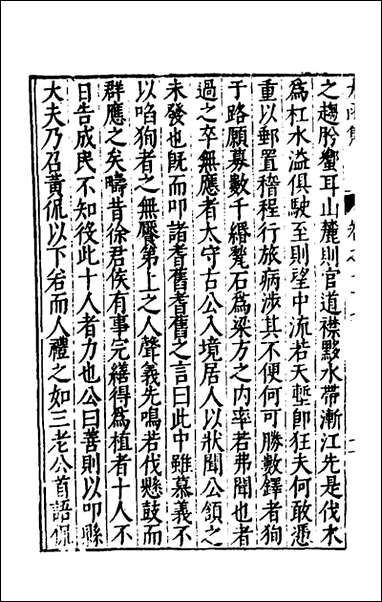 之趨肹蠁耳山麓則官道襟黟水帶漸江先是伐木
為杠水溢俱駛至則望中流若天塹卽狂夫何敢憑
重以郵置稽程行旅病涉其不便何可勝數鐸者狗
于路願募數千緡甃石為梁方之內率若弗聞也者
過之卒無應者太守古公入境居人以狀聞公領之
未發也旣而叩諸耆舊耆舊之言曰此中雖慕義不
以啗狗者之無饜第上之人聲義先鳴若伐懸鼓而
群應之矣疇昔徐君侯有事完繕得為植者十人不
日告成民不知役此十人者力也公曰善則以叩縣
大夫乃召黃侃以下若而人禮之如三老公首語侃